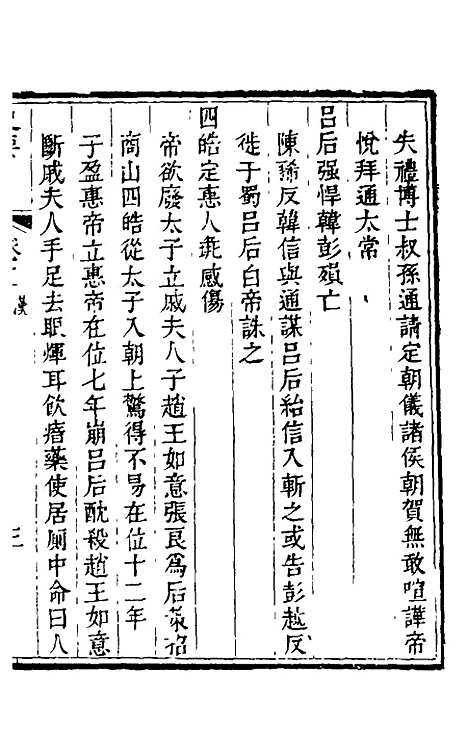 失禮博士叔孫通請定朝儀諸侯朝賀無敢喧譁帝
悅拜通太常
呂后强悍韓彭殞亡
陳豨反韓信與通謀呂后紿信入斬之或告彭越反
徙于蜀呂后白帝誅之
四皓定惠人彘感傷
帝欲廢太子立戚夫人子趙王如意張良爲后策招
商山四皓從太子入朝上驚得不易在位十二年
子盈惠帝立惠帝在位七年崩呂后酖殺趙王如意
斷戚夫人手足去眼煇耳飲瘖藥使居厠中命曰人
漢
三